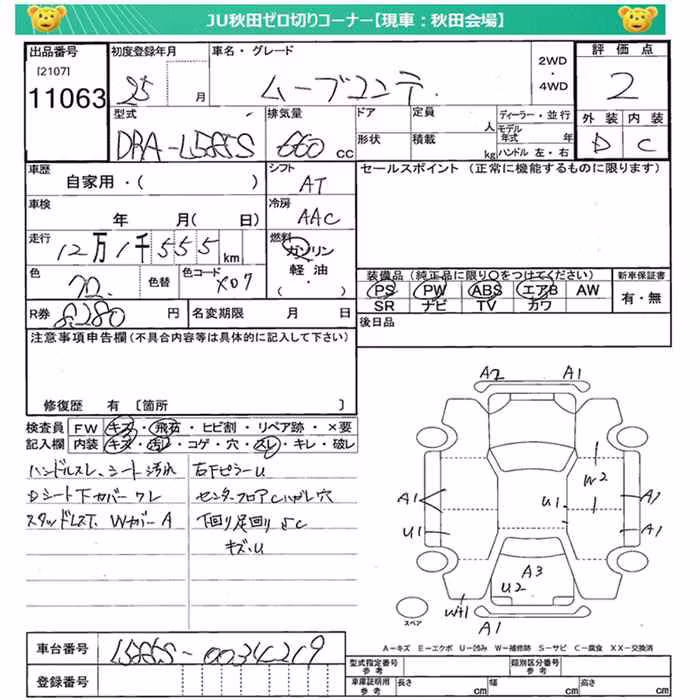 JU秋田ゼロ切りコーナー【現車：秋田会場】
出品番号 初度登録年月 車名・グレード 評価点
[2107]
11063 25 月 ムーブコンテ 2WD・4WD 2
型式 排気量 ドア 定員 人 ディーラー・並行 外装 内装
DBA-L585S 660 cc 形状 積載 kg モデル年式 年 ハンドル 左・右 D C
車歴 シフト セールスポイント (正常に機能するものに限ります)
自家用・( ) AT
車検 冷房
年 月( 日) AAC
走行 燃料
12万1千555km ガソリン
軽油
・( )
色 色替 色コード X07
装備品 (純正品に限り○をつけてください) 新車保証書
PS PW ABS エアB AW 有・無
SR ナビ TV カワ
R券 8280 円 名変期限 月 日 後日品
注意事項申告欄 (不具合内容等は具体的に記入して下さい)
修復歴 有 〔箇所 〕
検査員 FW キズ・飛石・ヒビ割・リペア跡・×要
記入欄 内装 キズ・汚れ・コゲ・穴・スレ・キレ・破レ
ハンドルスレ、シート汚れ 右FピラーU
Dシート下カバーワレ センターフロアCハガレ穴
スタッドレスT、WカバーA 下回り足回りSC
キズ・U
A2 A1
W2
A1 U1 A1
U1 A1
A3
U2
W+1
A1
スペア
A－キズ E－エクボ U－凹み W－補修跡 S－サビ C－腐食 XX－交換済
車台番号 L585S-0034219
登録番号
型式指定番号 参考 類別区分番号 参考
車庫証明用 参考 長さ cm 幅 cm 高さ cm